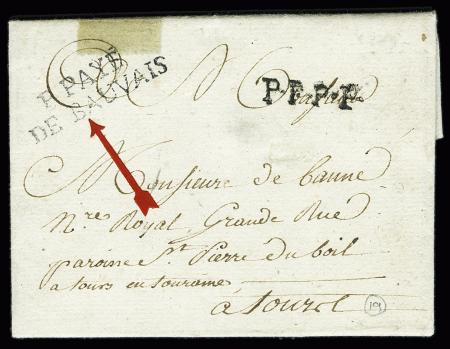 P. PAYÉ
DE BAUVAIS
P.P.P.P
Monsieur de baune
Nre Royal, Grande Rue
paroisse St Pierre du boil
a tours en touraine,
a tours